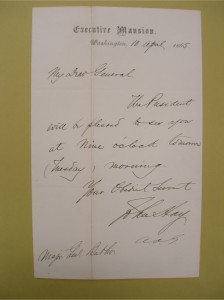 Executive Mansion,
Washington, 10 April, 1865
My Dear General
The President
will be pleased to see you
at Nine o'clock tomorrow
(Tuesday) morning.
Your Obedient Servant
John Hay
Major Genl Butler